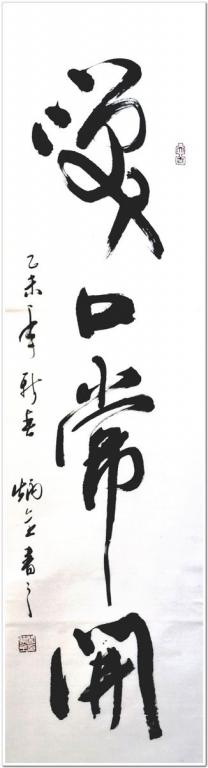 笑口常開
乙未年新春 炳書之